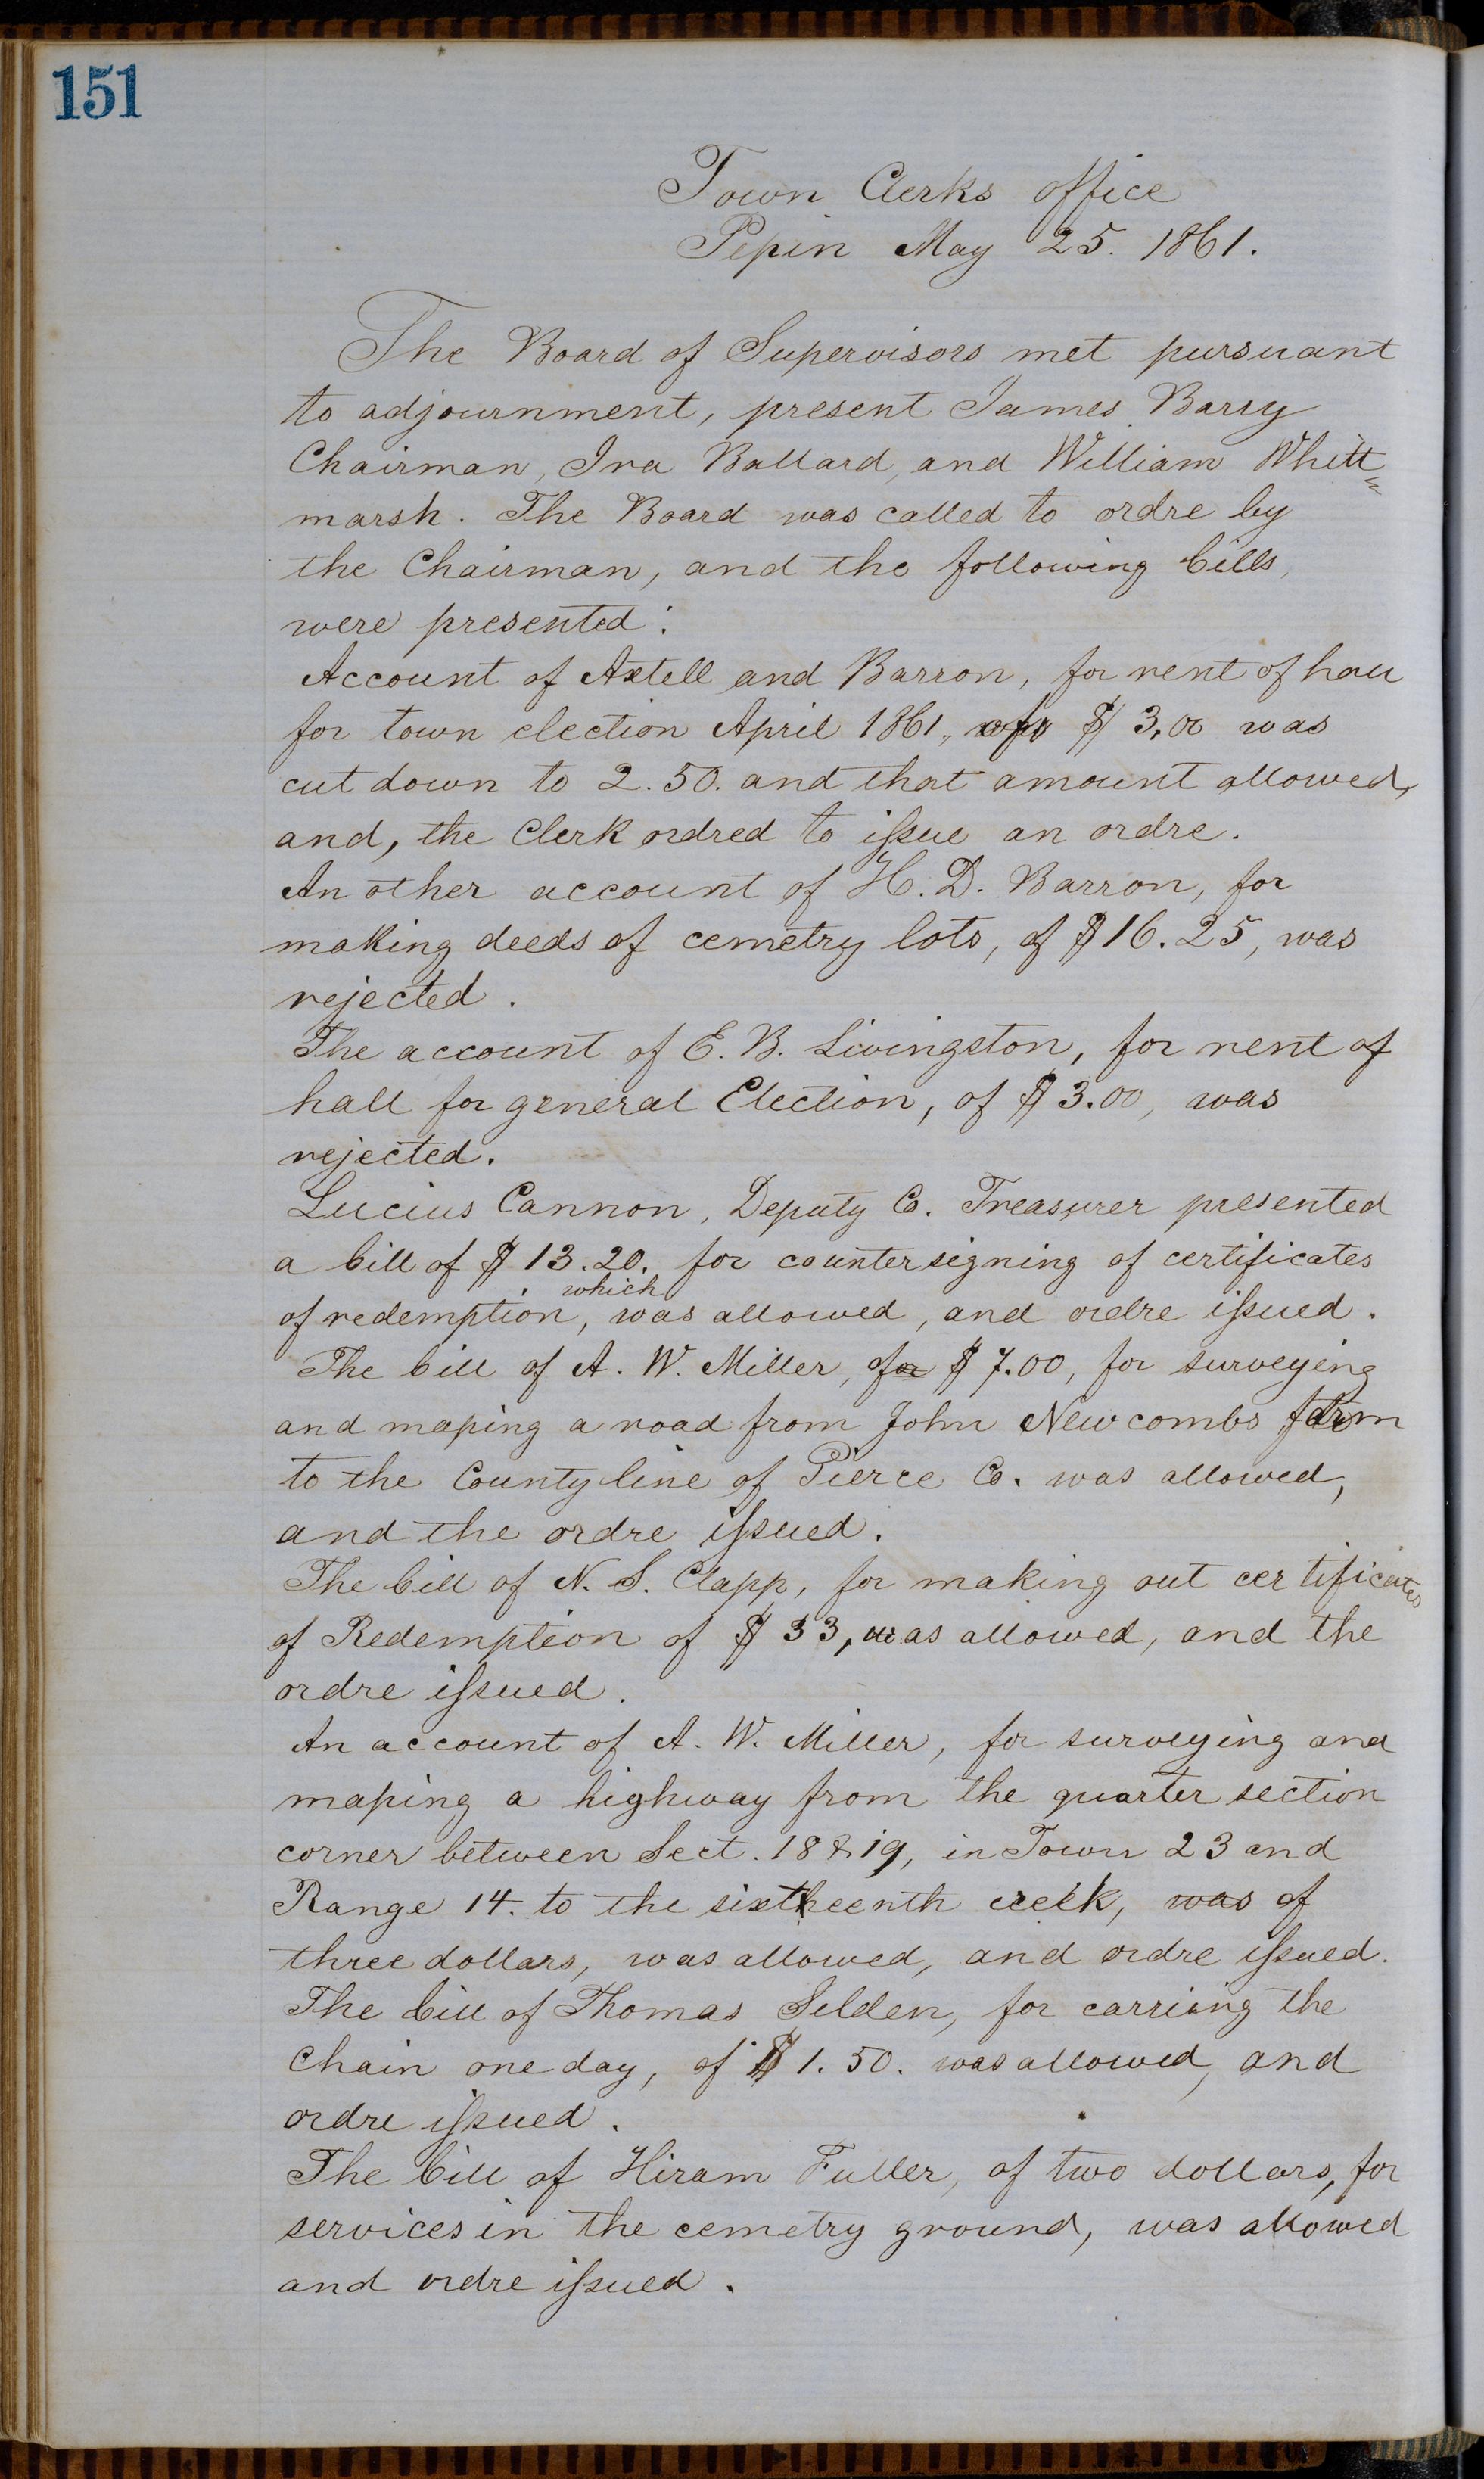 151
Town Clerks office
Pepin May 25. 1861.
The Board of Supervisors met pursuant
to adjournment, present James Barry
Chairman, Ira Ballard, and William Whitt=
marsh. The Board was called to ordre by
the Chairman, and the following bills,
were presented:
Account of Axtell and Barron, for rent of hall
for town election April 1861, of $ 3,00 was
cut down to 2.50. and that amount allowed,
and, the Clerk ordred to issue an ordre.
An other account of H. D. Barron, for
making deeds of cemetry lots, of $16.25, was
rejected.
The account of E. B. Livingston, for rent of
hall for general Election, of $ 3.00, was
rejected.
Lucius Cannon, Deputy Co. Treasurer presented
a bill of $ 13.20. for countersigning of certificates
of redemption, which was allowed, and ordre issued.
The bill of A. W. Miller, of $ 7.00, for surveying
and maping a road from John Newcombs farm
to the County line of Pierce Co. was allowed,
and the ordre issued.
The bill of N. S. Clapp, for making out certificates
of Redemption of $ 33, was allowed, and the
ordre issued.
An account of A. W. Miller, for surveying and
maping a highway from the quarter section
corner between Sect. 18 & 19, in Town 23 and
Range 14. to the sixtheenth creek, was of
three dollars, was allowed, and ordre issued.
The bill of Thomas Selden, for carriing the
Chain one day, of $ 1.50. was allowed, and
ordre issued.
The bill of Hiram Fuller, of two dollars, for
services in the cemetry ground, was allowed
and ordre issued.